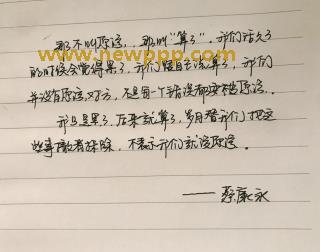 那不叫原谅，那叫“算了”。我们久了
www.newppp.com
的时候会觉得累了，我们算了，我们
并没有原谅对方，不是每一个错误都要被原谅。
我只是累了，后来就算了，岁月替我们把这
些事抹除，不表示我们就该原谅。
——蔡康永